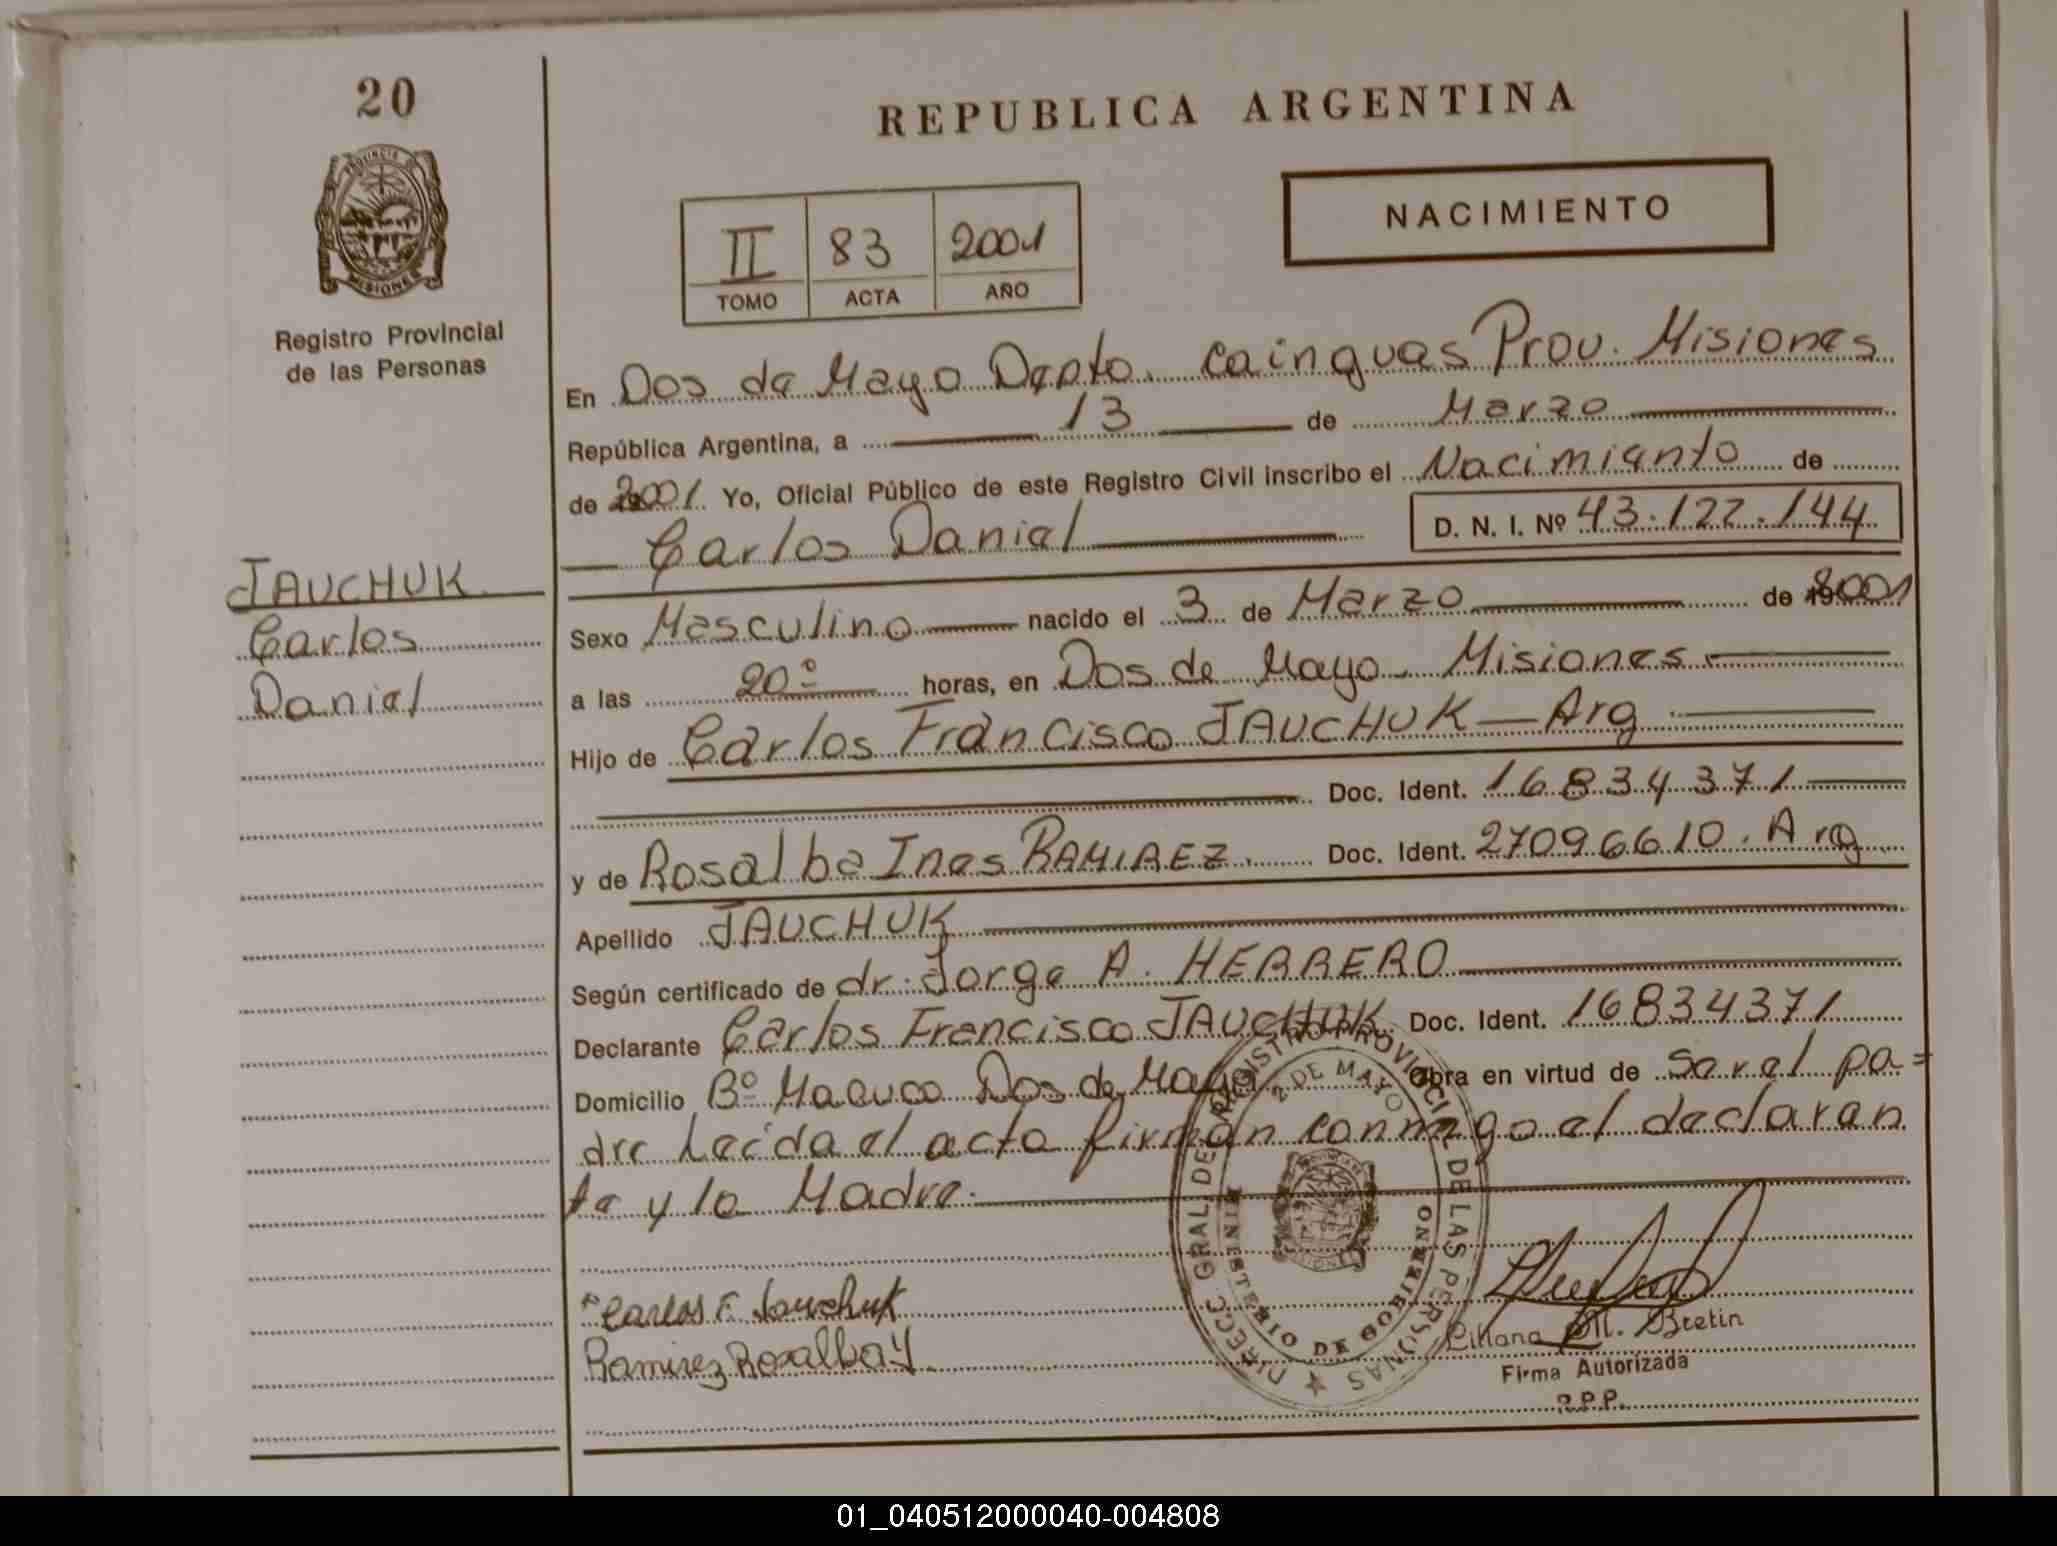 20
REPUBLICA ARGENTINA
PROVINCIA DE
MISIONES
Registro Provincial
de las Personas
II 83 2001
TOMO ACTA AÑO
NACIMIENTO
En Dos de Mayo Depto. Cainguas Prov. Misiones
República Argentina, a 13 de Marzo
de 2001. Yo, Oficial Público de este Registro Civil inscribo el Nacimiento de
Carlos Daniel D. N. I. Nº 43.122.144
JAUCHUK
Carlos
Daniel
Sexo Masculino nacido el 3 de Marzo de 2001
a las 20º horas, en Dos de Mayo Misiones
Hijo de Carlos Francisco JAUCHUK — Arg
Doc. Ident. 16834371
y de Rosalba Ines RAMIREZ. Doc. Ident. 27096610. Arg
Apellido JAUCHUK
Según certificado de dr. Jorge A. HERRERO
Declarante Carlos Francisco JAUCHUK Doc. Ident. 16834371
Domicilio Bº Macuco Dos de Mayo Obra en virtud de ser el pa=
dre Leida el acta firman conmigo el declaran
te y la Madre.
DIRECC GRAL DE REGISTRO PROVINCIAL DE LAS PERSONAS
2 DE MAYO
MINISTERIO DE GOBIERNO
Carlos F. Jauchuk
Ramirez Rosalba Y
Liliana M. Bretin
Firma Autorizada
R.P.P.
01_040512000040-004808